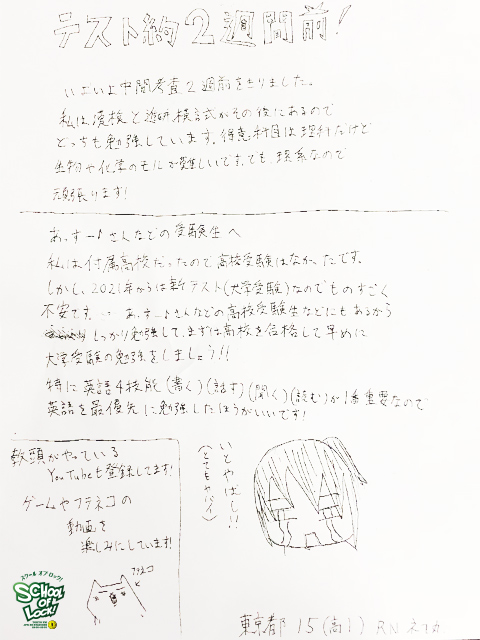 テスト約2週間前!
いよいよ中間考査2週前をきりました。
私は漢検と 模試がその後にあるので
どっちも勉強しています。得意科目は理科だけど
生物や化学のモルで難しいです。でも、理系なので
頑張ります!
あっすー♪さんなどの受験生へ
私は付属高校だったので高校受験はなかったです。
しかし、2021年からは新テスト(大学受験)なのでものすごく
不安です。… あっすー♪さんなどの高校受験生などにもあるから
しっかり勉強して、まずは高校を合格して早めに
大学受験の勉強をしましょう!!
特に英語4技能(書く)(話す)(聞く)(読む)が1番重要なので
英語を最優先に勉強したほうがいいです!
教頭がやっている
YouTubeも登録してます!
ゲームやフテネコの
動画を
楽しみにしています!
フテネコ
いとやばし!!
(とてもヤバイ)
スクール オブ ロック!
SCHOOL OF LOCK!
東京都 15(高1) RN ネコ